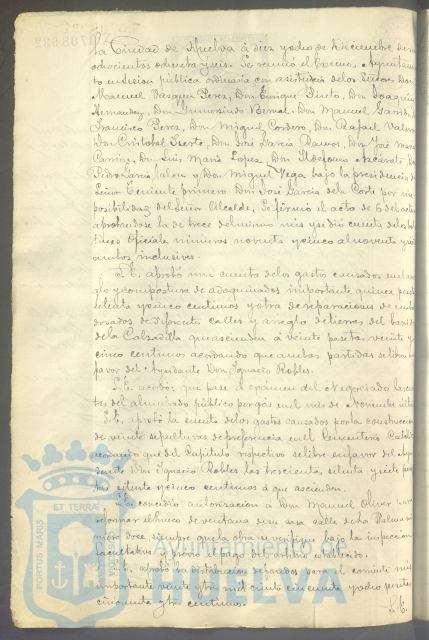 la Ciudad de Huelva á diez y ocho de Diciembre de mil
ochocientos ochenta y seis. Se reunió el Excmo. Ayuntamien
to en sesion pública ordinaria con asistencia de los Señores Don
Manuel Vasquez Perez, Don Enrique Prieto, Don Joaquin
Hernandez, Don Gumersindo Bernal, Don Manuel Garrido, Don
Francisco Perez, Don Miguel Cordero, Don Rafael Valero
Don Cristobal Don José Garcia Ramos, Don José Maria
Don Luis Maria Lopez, Don Ildefonso Don
Pedro Garcia y Don Miguel Vega bajo la presidencia del
Señor Teniente primero Don José Garcia de la Corte por im
posibilidad del Señor Alcalde. Se firmó el acta de 6 del actual
aprobandose la de trece del mismo mes y se dió cuenta de los bole
tines Oficiales números noventa y cinco al noventa y
ambos inclusives.
S.E. aprobó una cuenta de los gastos causados en el arre
glo y compostura de adoquinados importante quince pesetas
setenta y cinco centimos y otra de reparaciones de
de diferentes calles y arreglo de tierras del
de la Calzadilla que ascienden á veinte pesetas veinte y
cinco centimos acordando que ambas partidas se libren á
favor del Ayudante Don Ignacio Robles.
S.E. acordó: que pase á exámen del Negociado la cuen
ta del alumbrado público por gas en el mes de Noviembre último
S.E. aprobó la cuenta de los gastos causados por la construccion
de veinte sepulturas de preferencia en el Cementerio Católico
acordando que del Capitulo respectivo se libre en favor del Ayu
dante Don Ignacio Robles las trescientas setenta y siete pese
tas setenta y cinco centimos á que ascienden.
S.E. concedió autorizacion á Don Manuel Oliver para
reformar el hueco de ventana de su casa calle de la Palma nú
mero doce siempre que la obra se verifique bajo la inspeccion
facultativa y previo pago del arbitrio establecido.
S.E. aprobó la distribucion de fondos para el corriente mes
importante veinte y tres mil ciento cincuenta y ocho pesetas
cincuenta y tres centimos.
S.E.
PORTUS MARIS ET TERRÆ
Ayuntamiento de
HUELVA